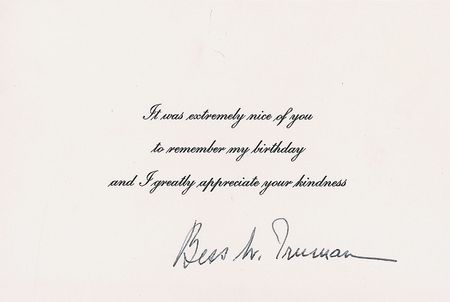 It was extremely nice of you
to remember my birthday
and I greatly appreciate your kindness
Bess W. Truman